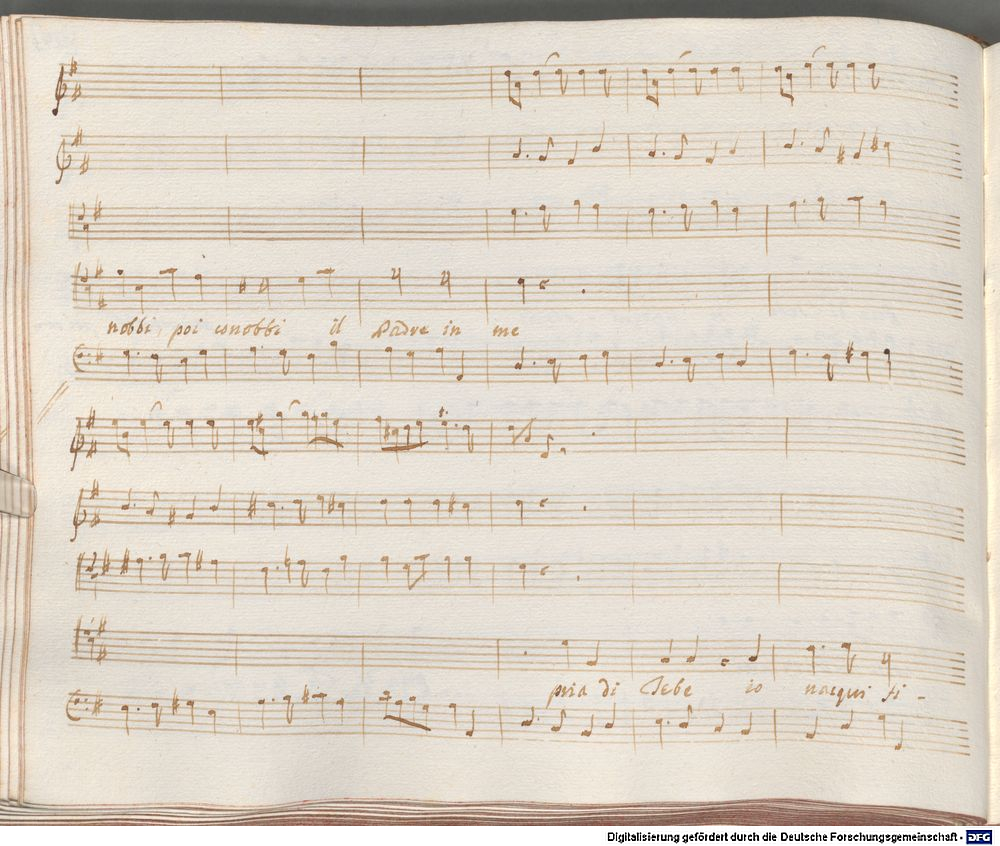 nobbi, poi conobbi il Padre in me
pria di Tebe io nacqui fi-
Digitalisierung gefördert durch die Deutsche Forschungsgemeinschaft - DFG